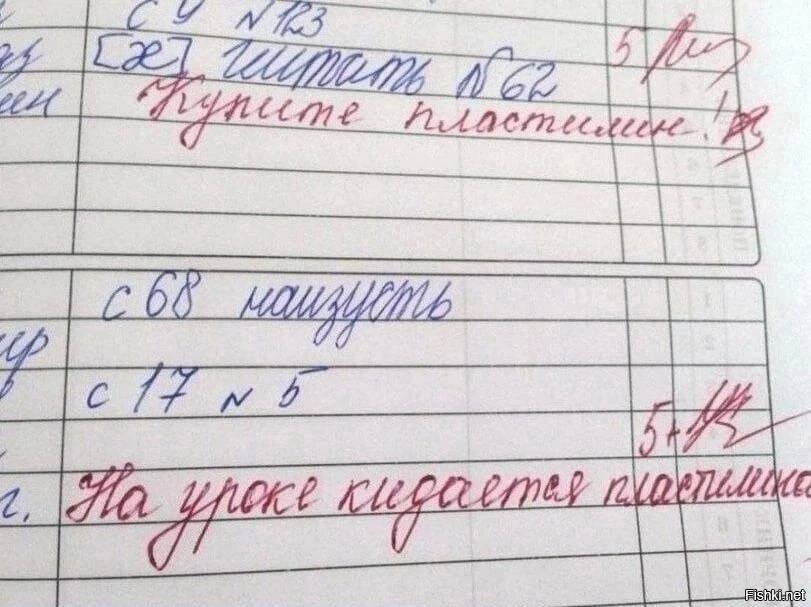 с 4 №123
[ж] читать №62 5
Купите пластилин!
с 68 наизусть
с 17 № 5
5+
На уроке кидается пластилино
Fishki.net